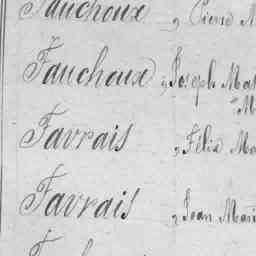 Fauchoux , Pierre M
Faucheux , Joseph Mat
"M
Favrais , Félix Ma
Favrais , Jean Mari